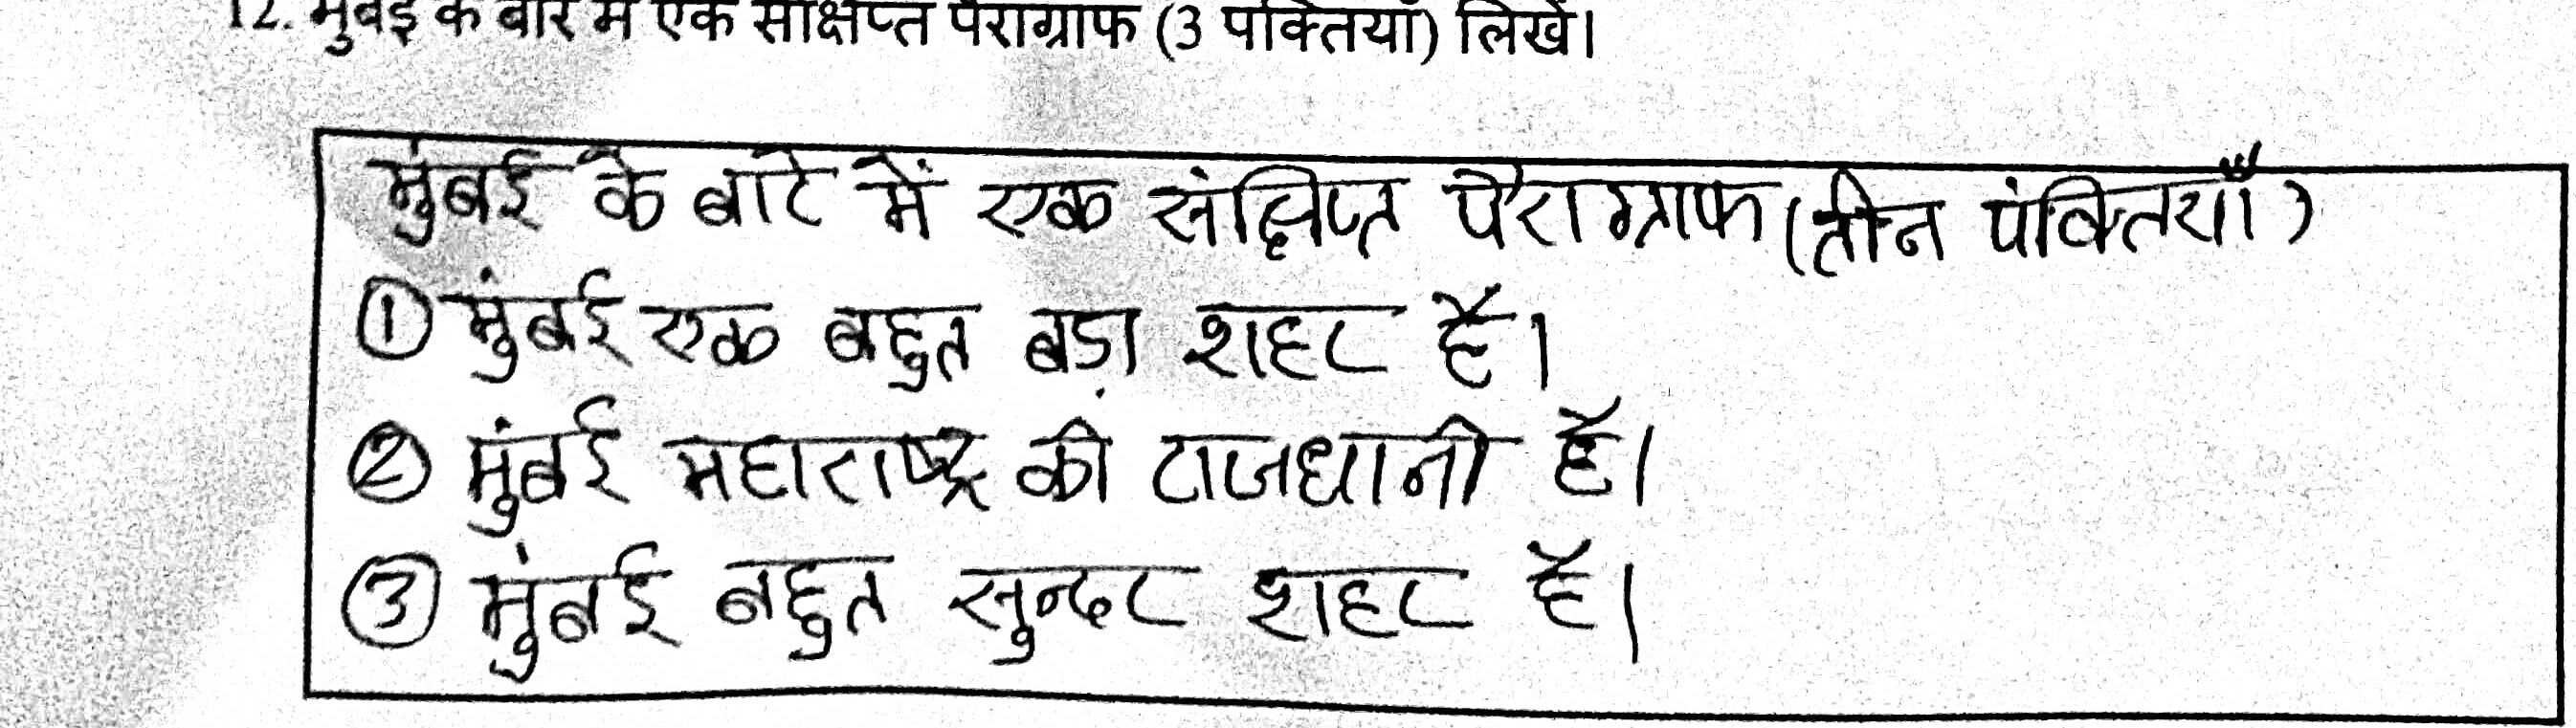 12. मुंबई के बारे में एक संक्षिप्त पैराग्राफ (3 पंक्तियाँ) लिखें।
मुंबई के बारे में एक संक्षिप्त पैराग्राफ (तीन पंक्तियाँ)
① मुंबई एक बहुत बड़ा शहर है।
② मुंबई महाराष्ट्र की राजधानी है।
③ मुंबई बहुत सुन्दर शहर है।